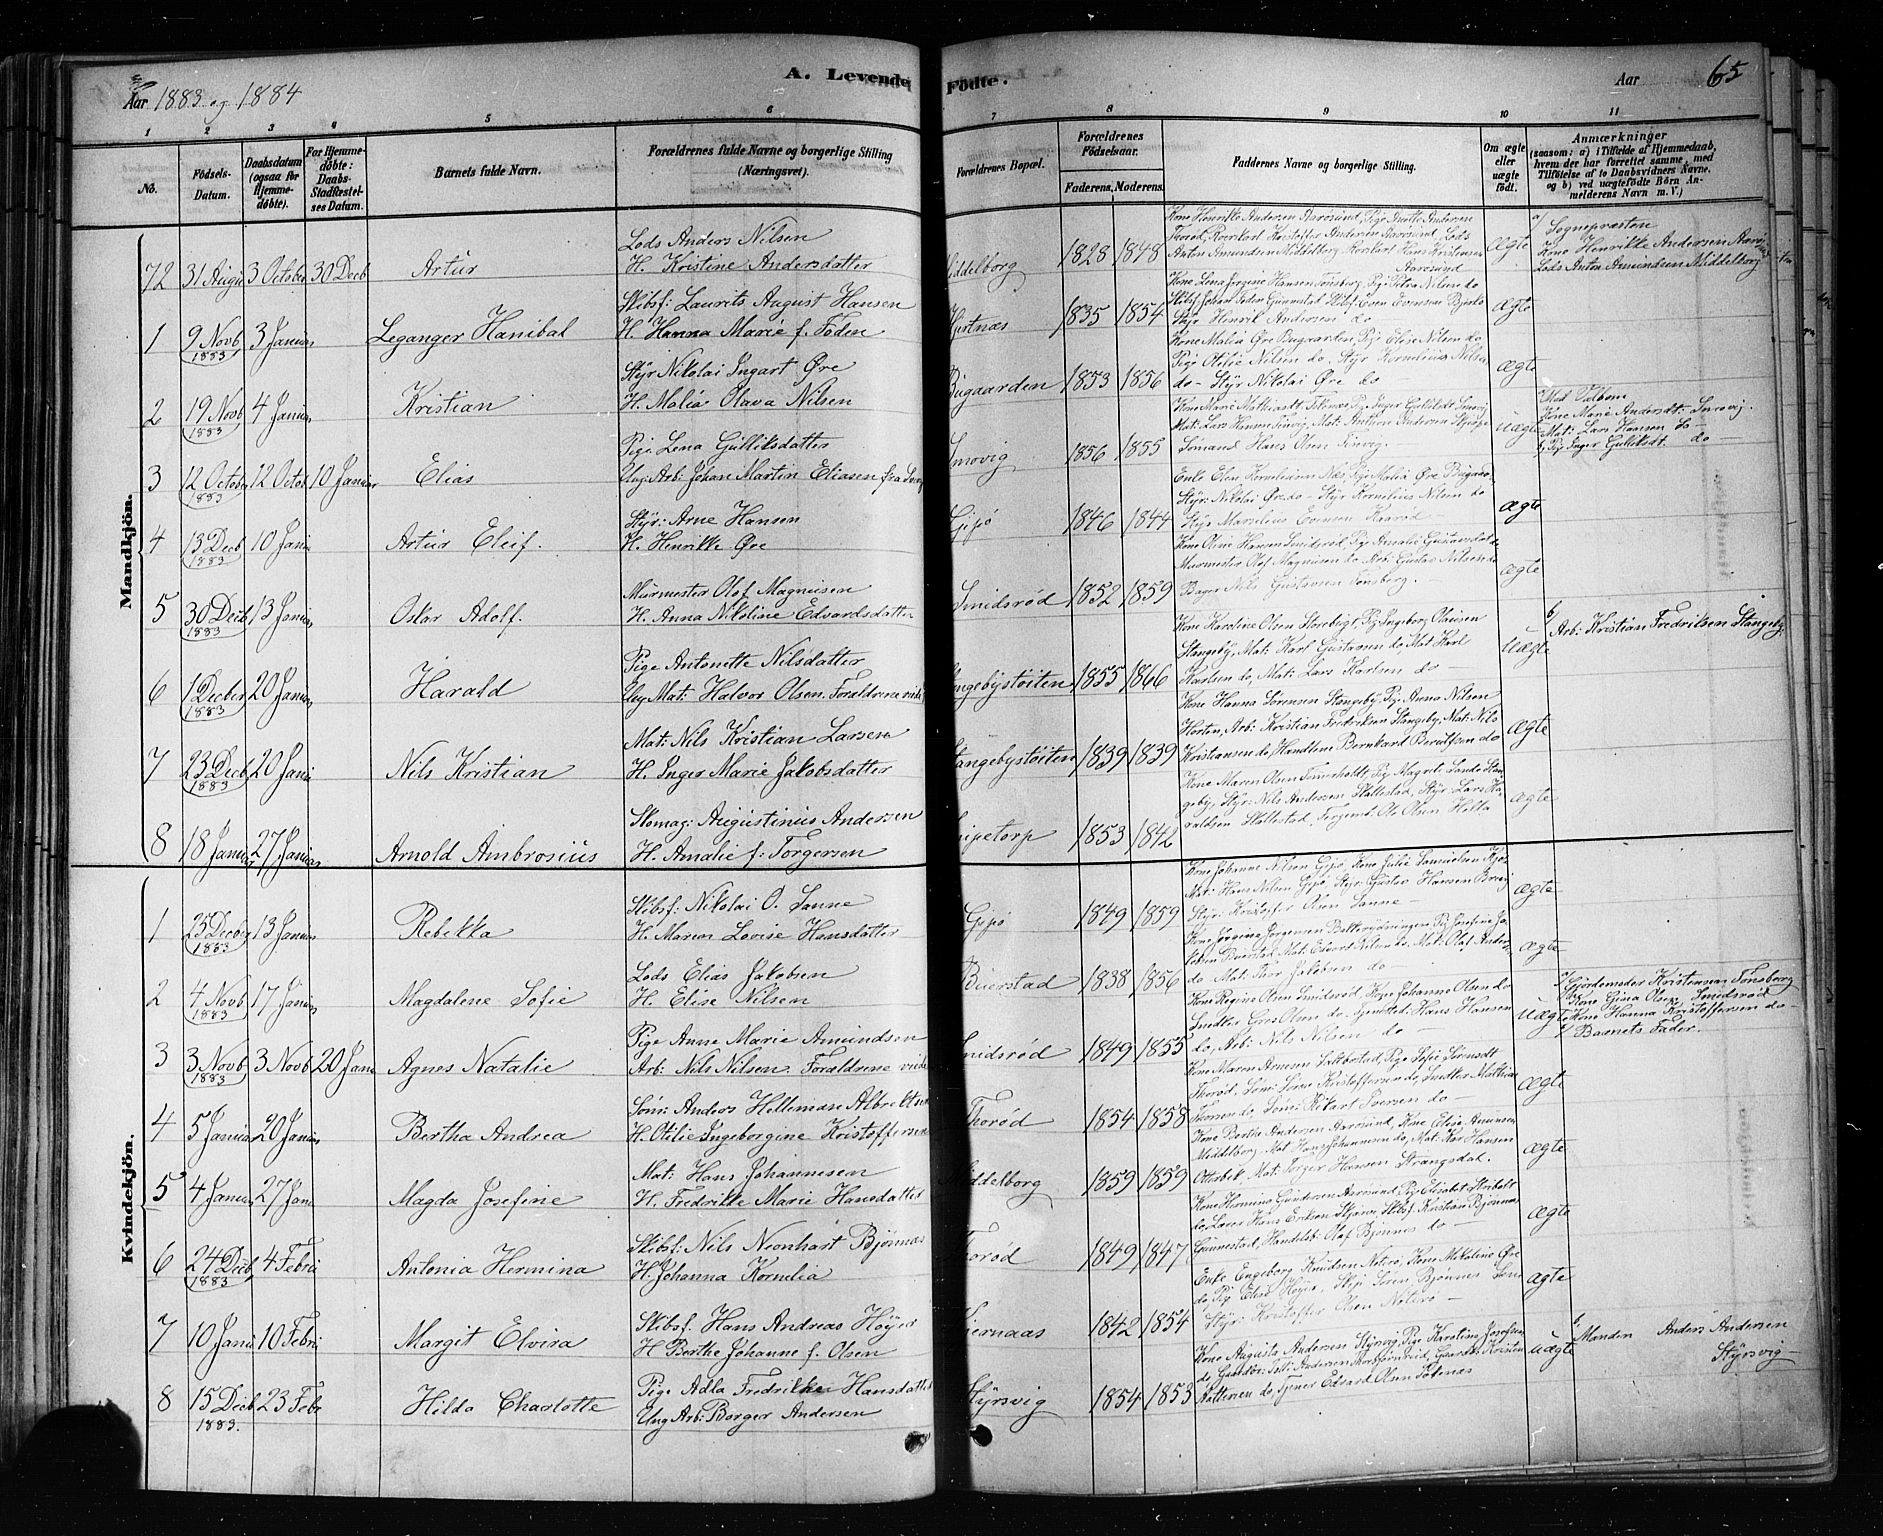 Aar 1883 og 1884
A. Levende Fødte.
Aar
65
1 2 3 4 5 6 7 8 9 10 11
No.
Fødsels-Datum.
Daabsdatum (ogsaa for Hjemmedøbte).
For Hjemmedøbte: Daabs-Stadfæstelses Datum.
Barnets fulde Navn.
Forældrenes fulde Navne og borgerlige Stilling (Næringsvei).
Forældrenes Bopæl.
Forældrenes Fødselsaar.
Faderens. Moderens.
Faddernes Navne og borgerlige Stilling.
Om ægte eller uægte født.
Anmærkninger
(saasom: a) i Tilfælde af Hjemmedaab, hvem der har forrettet samme, med Tilføielse af to Daabsvidners Navne, og b) ved uægtefødte Børn Anmelderens Navn m. V.)
Mandkjön.
72 31 Augu 3 October 30 Decb Artur
Lods Anders Nilsen
H. Kristine Andersdatter
Middelborg 1828 1848
Kone Henrikke Andersen Aarøsund, Pige Anette Andersen
Anton Amundsen Middelborg
Aarøsund
ægte
a/ Sognepræsten
Kone Henrikke Andersen Aarø
Lods Anton Amundsen Middelborg
1 9 Novb 1883 3 Januar Leganger Hanibal
Skibsf: Laurits August Hansen
H. Hanna Marie f. Foden
Hjertnæs 1835 1854
Kone Lena Jørgine Hansen Tønsberg, Pige Petra Nilsen do
Styr Henrik Andersen do
ægte
2 19 Novb 1883 4 Januar Kristian
Styr Nikolai Ingart Øre
H. Malia Olava Nilsen
Bugaarden 1853 1856
Kone Malia Øre Bugaarden, Pige Elise Nilsen do
Pige Otilie Nilsen do, Styr Kornelius Nilsen
do - Styr Nikolai Øre do -
ægte
3 12 October 1883 12 Octob 10 Januar Elias
Pige Lena Gulliksdatter
Ung: Arb: Johan Martin Eliasen fra
Smovig 1856 1855
Sømand Hans Olsen
uægte
Ved Udbom
Kone Marie Andersdt: Smovig.
Mat: Lars Hansen do -
Pige Inger Gulliksdt. do -
4 13 Decb 1883 10 Janu Artur Eleif.
Styr: Arne Hansen
H. Henrikke Øre
Gipø 1846 1844
Enke Elen Pige Malia Øre Bugaar
Styr: Nikolai Øre do - Styr Kornelius Nilsen do
Styr Marselius Evensen
ægte
5 30 Decb 1883 13 Januar Oskar Adolf.
Murmester Olof Magnusen
H. Anna Nikoline Edvardsdatter
Smidsrød 1852 1859
Kone Oline Hansen Smidsrød, Pige Amalie Gustavsdat do
Murmester Olof Magnusen do Arb: Gustav Nilsen do
Bager Nils Gustavsen Tønsberg.
ægte
6 1 Decbr 1883 20 Januar Harald
Pige Antonette Nilsdatter
Ung Mat: Halvor Olsen. Forældrene
Stangebystøiten 1855 1866
Kone Karoline Olsen Pige Ingeborg Olausen
Stangeby, Mat: Karl Gustavsen do Mat Karl
Karlsen do, Mat: Lars Karlsen do -
Uægte
b/
Arb: Kristian Fredriksen Stangeby
7 23 Decb 1883 20 Janu Nils Kristian
Mat: Nils Kristian Larsen
H. Inger Marie Jakobsdatter
Stangebystøiten 1839 1839
Kone Hanna Sørensen Stangeby, Pige Anna Nilsen
Horten, Arb: Kristian Fredriksen Stangeby, Mat: Nils
Kristiansen do, Handlene Bernhard Berntsen do
ægte
8 18 Januar 27 Januar Arnold Ambrosius
Skomag: Augustinus Andersen
H. Amalie f. Torgersen
Lipetorp 1853 1842
Kone Maren Olsen Pige Magrete Sande Stan
geby, Styr: Nils Andersen Skallestad, Styr: Lars Ha
raldsen Skallestad, Ole Olsen
ægte
Kvindekjön.
1 25 Decbr 1883 13 Januar Rebekka
Skibsf: Nikolai O. Sanne
H. Maren Lovise Hansdatter
Gipø 1849 1859
Kone Johanne Nilsen Gipø, Kone Julie Samuelsen
Mat: Hans Nilsen Gipø, Styr: Gustav Hansen
Styr: Kristoffer Olsen Sanne -
ægte
2 4 Novb 1883 17 Januar Magdalene Sofie
Lods Elias Jakobsen
H. Elise Nilsen
Beierstad 1838 1856
Kone Jørgine Jørgensen Pige Josefine Ja
kobsen Beierstad, Mat: Edvard Nilsen do, Mat: Olaf Ander
do Mat: Jakobsen do
ægte
3 3 Novb 1883 3 Novb 20 Janu Agnes Natalie
Pige Anne Marie Amundsen
Arb: Nils Nilsen. Forældrene
Smidsrød 1849 1855
Kone Regine Olsen Smidsrød, Kone Johanne Olsen do
Snedker Olsen do, Hans Hansen
do, Arb: Nils Nilsen do -
Uægte
a/ Gjordemoder Kristensen Tønsberg
Kone Gina Olsen Smidsrød
Kone Hanna Kristoffersen do -
b/ Barnets Fader.
4 5 Januar 20 Januar Bertha Andrea
Søm: Anders Hilleman Albrektsen
H. Otilie Ingeborgine Kristoffersen
Thorød 1854 1858
Kone Maren Arnesen Pige Sofie Sørensdt
Thorød, Søm: Sørne Kristoffersen do, Snedker Mathias
Thorsen do, Søm: Rikart Iversen do -
ægte
5 4 Januar 27 Janu Magda Josefine
Mat: Hans Johannesen
H. Fredrikke Marie Hansdatter
Middelborg 1859 1859
Kone Berthe Andersen Aarøsund, Kone Elise Amunsen
Middelborg, Mat Hans Johannesen do, Mat: Kar Hansen
Otterbek, Mat: Torger Hansen Strangsdal.
ægte
6 24 Decb 1883 4 Febru Antonia Hermina
Skibsf: Nils Neonhart Bjønnes
H. Johanna Kornelia
Thorød 1849 1847
Kone Hermine Gundersen Aarøsund, Pige Elisabet
do, Lærer Hans Eriksen Skjærve, Skibsf. Kristian Bjønnes
Gunnestad, Handelsb: Olaf Bjønnes do -
ægte
7 10 Janu 10 Febru Margit Elvira
Skibsf. Hans Andreas Høyer
H Berthe Johanne f. Olsen
Kjernaas 1842 1854
Enke Engeborg Knudsen Øre
do, Pige Elise Høyer, Skip Søren Bjønnes
Styr: Kristoffer Olsen
ægte
8 15 Decb 1883. 23 Febr Hilda Charlotte
Pige Adla Fredrikke Hansdatter
Ung Arb: Borger Andersen
Styrsvig 1854 1853
Kone Augusta Andersen Styrsvig, Pige Karoline Josefsen
Edvard Olsen
uægte
b/ Manden Anders Andersen
Styrsvig -